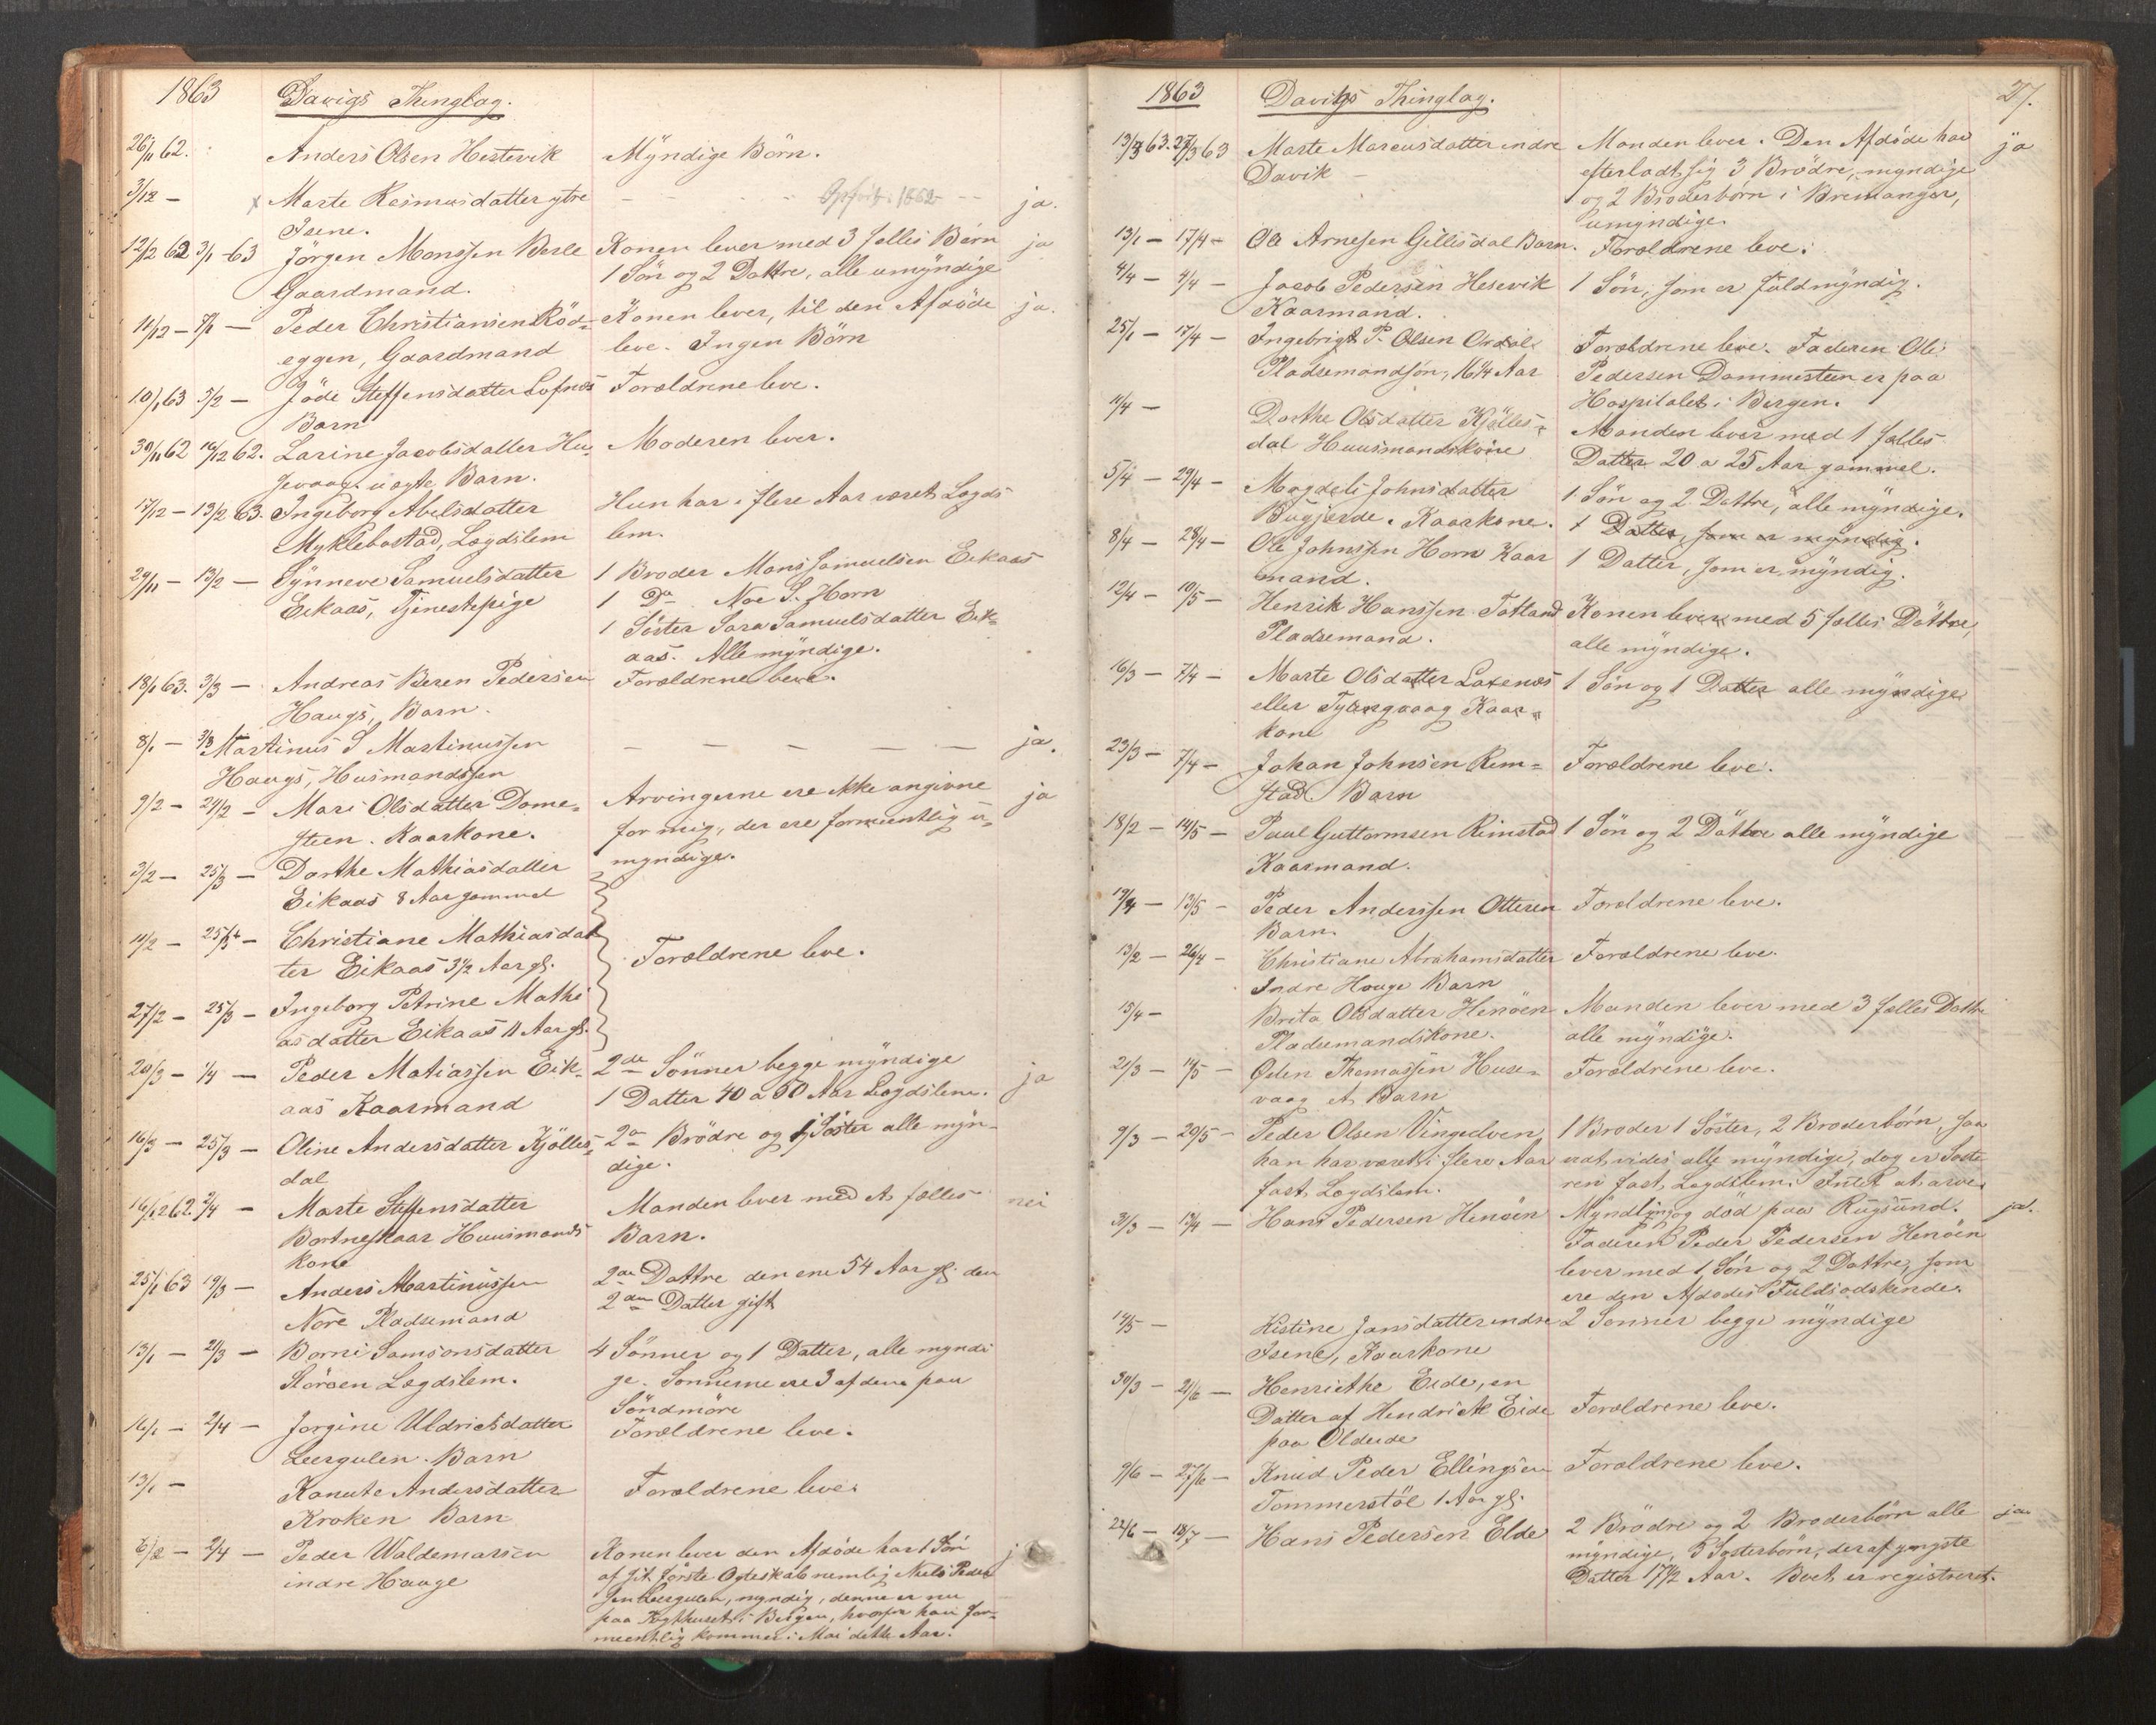 1863 Davigs Thinglag.
26/11 62. Anders Olsen Hestevik Myndige Börn.
3/12 - x Marte Rasmusdatter ytre - - - Opført: 1862 - - ja.
Isene.
12/12 62 3/1 - 63 Jörgen Monssen Berle Konen lever med 3 fælles Börn ja
Gaardmand. 1 Sön og 2 Dattre, alle umyndige
11/12 - 7/1 - Peder Christiansen Röd- Konen lever, til den Afdöde ja.
eggen, Gaardmand leve. Ingen Börn
10/1 63 5/2 - Jöde Steffensdatter Lofnæs Forældrene leve.
Barn
30/11 62 16/12 62. Larine Jacobsdatter Hu- Moderen lever.
sevaag uægte Barn.
17/12 - 13/2 63. Ingeborg Abelsdatter Hun har i flere Aar været Lægds
Myklebostad, Lægdslem lem.
29/11 - 13/2 - Synneve Samuelsdatter 1 Broder Mons Samuelsen Eikaas
Eikaas, Tjenestepige 1 Do Noe S. Horn
1 Söster Sara Samuelsdatter Eik-
aas. Alle myndige.
18/1 63. 3/3 - Andreas Beren Pedersen Forældrene leve.
Haugs, Barn.
8/1 - 3/3 Martinus S Martinussen - - - - - ja.
Haugs, Husmandssen
9/2 - 24/2 - Mari Olsdatter Dome- Arvingerne ere ikke angivne ja
steen. Kaarkone. for mig, der ere formeentlig u-
myndige.
3/2 - 25/3 - Dorthe Mathiasdatter
Eikaas 8 Aar gammel
11/2 - 25/3 - Christiane Mathiasdat
ter Eikaas 3 1/2 Aar gl. Forældrene leve.
27/2 - 25/3 - Ingeborg Petrine Mathi
asdatter Eikaas 11 Aar gl.
20/3 - 1/4 - Peder Matiassen Eik- 2de Sönner begge myndige ja
aas Kaarmand 1 Datter 40 a 50 Aar Lægdslem.
16/3 - 25/3 - Oline Andersdatter Kjölles- 2de Brödre og 1 Söster alle myn-
dal dige.
16/12 62. 2/4 - Marte Steffensdatter Manden lever med et fælles nei
Bortneskaar Huusmands Barn.
kone
25/1 63 19/3 - Anders Martinussen 2de Dattre den ene 54 Aar gl. den
Nore Pladsemand 2den Datter gift
13/1 - 2/3 - Borni Samsonsdatter 4 Sönner og 1 Datter, alle myndi
Störöen Lægdslem. ge. Sonnerne ere 3 af dem paa
Söndmöre
16/1 - 2/4 - Jorgine Uldrichsdatter Forældrene leve.
Leergulen. Barn
13/1 - Kanute Andersdatter Forældrene leve.
Kroken Barn
6/2 - 2/4 - Peder Waldemarsen Konen lever den Afdöde har 1 Sön j
indre Hauge af sit förste Egteskab nemlig Niels Peder
sen Leergulen, myndig, denne er nu
paa Tugthuset i Bergen, hvorfra han for-
meentlig kommer i Mai dette Aar.
1863 Davigs Thinglag. 27.
13/3 63. 27/3 63 Marte Marcusdatter indre Manden lever. Den Afdöde har ja
Davik - efterladt sig 3 Brödre, myndige
og 2 Broderbørn i Bremanger,
umyndige.
13/1 - 17/4 - Ole Arnesen Gillesdal Barn. Forældrene leve.
4/4 - 4/4 - Jacob Pedersen Hesevik 1 Sön, som er fuldmyndig.
Kaarmand.
25/1 - 17/4 - Ingebrigt P. Olsen Ordal Forældrene leve. Faderen Ole
Pladsemandsön, 16 1/4 Aar Pedersen Dommesteen er paa
Hospitalet i Bergen.
11/4 - Dorthe Olsdatter Kjölles- Manden lever med 1 fælles
dal Huusmandskone Datter 20 a 25 Aar gammel.
5/4 - 29/4 - Magdeli Johnsdatter 1 Sön og 2 Dattre, alle myndige.
Bugjerde. Kaarkone. 1 Datter, som er myndig.
8/4 - 28/4 - Ole Johnssen Horn Kaar 1 Datter, som er myndig.
mand.
12/4 - 10/5 - Henrik Hanssen Totland Konen lever med 5 fælles Döttre,
Pladsemand. alle myndige.
16/3 - 7/4 - Marte Olsdatter Laxenæs 1 Sön og 1 Datter alle myndige
eller Tytingvaag Kaar-
kone
23/3 - 7/4 - Johan Johnsen Rim- Forældrene leve.
stad. Barn
18/2 - 14/5 - Paul Guttormsen Rimstad 1 Sön og 2 Döttre alle myndige
Kaarmand.
19/4 - 13/5 - Peder Anderssen Otteren Forældrene leve.
Barn.
13/2 - 26/4 - Christiane Abrahamsdatter Forældrene leve.
Indre Hauge Barn
15/4 - Brita Olsdatter Henöen Manden lever med 3 fælles Dattre
Pladsemandskone. alle myndige.
21/3 - 14/5 - Ösen Thomassen Huse- Forældrene leve.
vaag et Barn
9/3 - 20/5 - Peder Olsen Vingelven 1 Broder 1 Söster, 2 Broderbörn, saa
han har været i flere Aar vidt vides alle myndige, dog er Söste
fast Lægdslem. ren fast Lægdslem. Intet at arve.
31/3 - 13/4 - Hans Pedersen Henöen Myndling og död paa Rugsund. ja.
Faderen Peder Pedersen Henöen
lever med 1 Sön og 2 Dattre, som
ere den Afdödes Fuldsödskende.
14/5 - Kistine Jansdatter indre 2 Sonner begge myndige
Isene, Kaarkone
30/3 - 21/6 - Henriethe Eide, en
Datter af Hendrick Eide Forældrene leve.
paa Oldeide
9/6 - 27/6 - Knud Peder Ellingsen Forældrene leve.
Tommerstöl 1 Aar gl.
22/6 - 18/7 - Hans Pedersen Elde 2 Brödre og 2 Broderbörn alle ja
myndige, 3 Sösterbörn, deraf yngste
Datter 17 1/2 Aar. Boet er registreret.